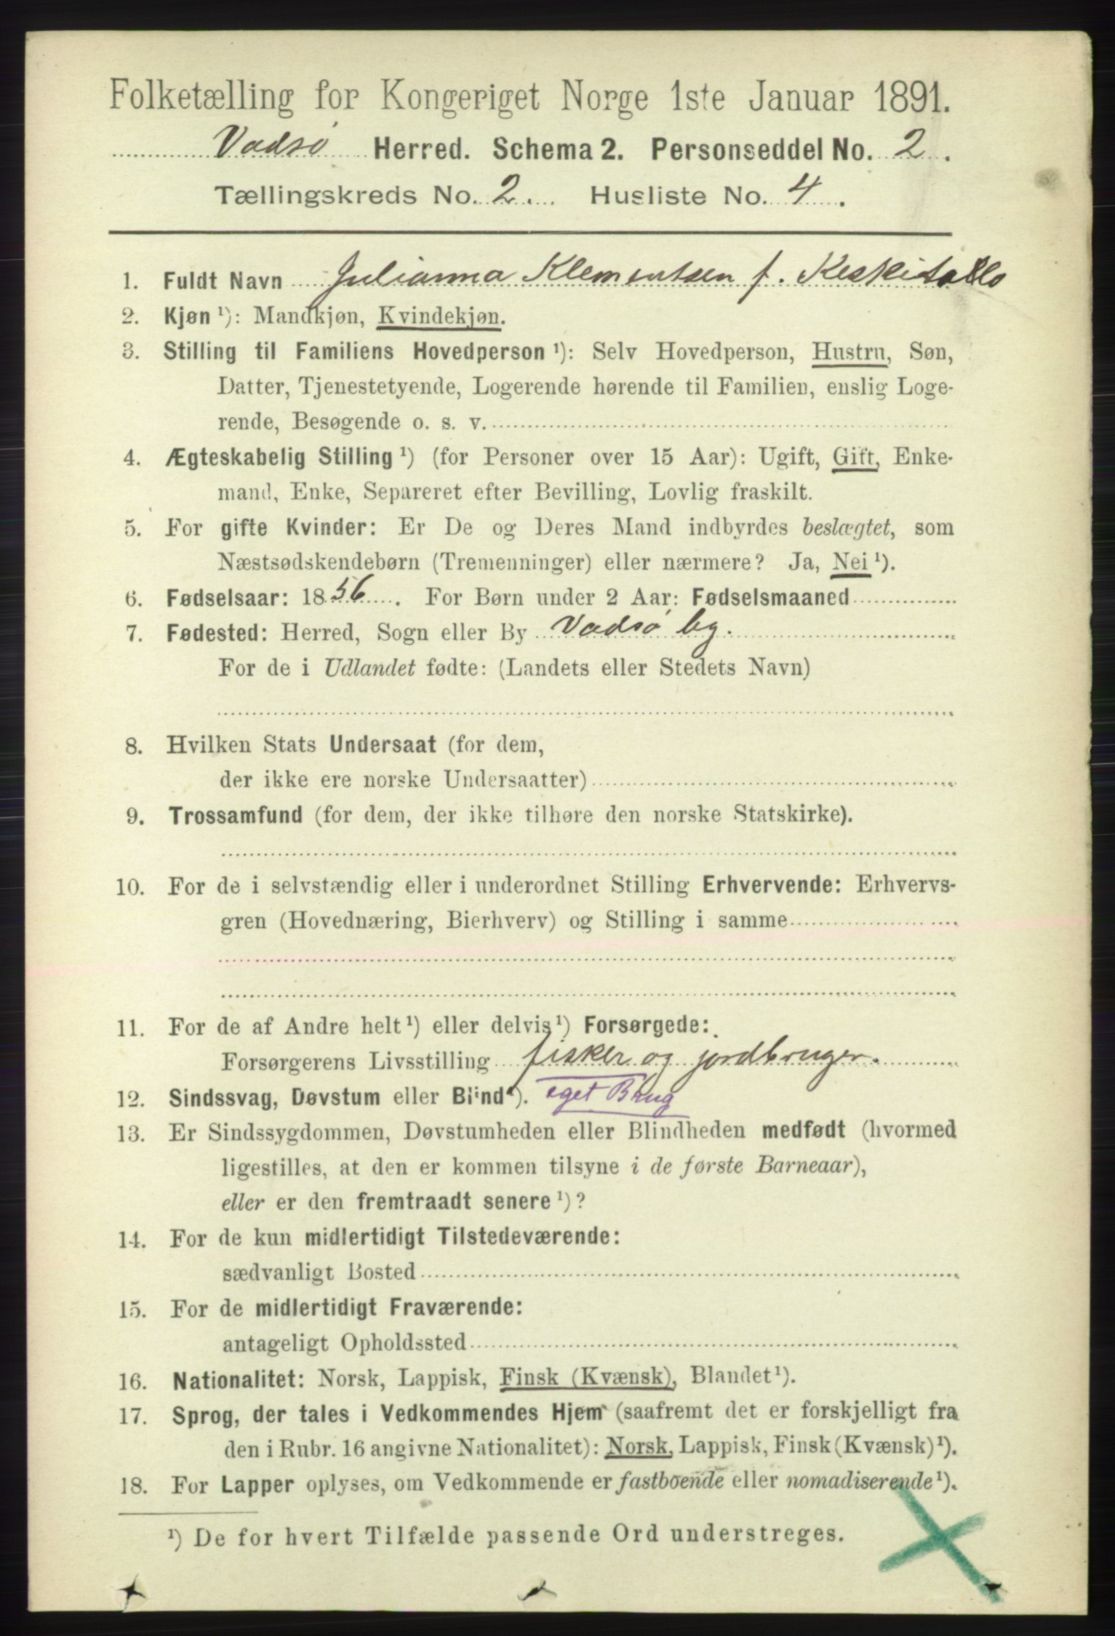 Folketælling for Kongeriget Norge 1ste Januar 1891.
Vadsø Herred. Schema 2. Personseddel No. 2.
Tællingskreds No. 2. Husliste No. 4.
1. Fuldt Navn Julianna Klementsen f. Keskitallo
2. Kjøn ¹): Mandkjøn, Kvindekjøn.
3. Stilling til Familiens Hovedperson ¹): Selv Hovedperson, Hustru, Søn,
Datter, Tjenestetyende, Logerende hørende til Familien, enslig Loge-
rende, Besøgende o. s. v.
4. Ægteskabelig Stilling ¹) (for Personer over 15 Aar): Ugift, Gift, Enke-
mand, Enke, Separeret efter Bevilling, Lovlig fraskilt.
5. For gifte Kvinder: Er De og Deres Mand indbyrdes beslægtet, som
Næstsødskendebørn (Tremenninger) eller nærmere? Ja, Nei ¹).
6. Fødselsaar: 1856. For Børn under 2 Aar: Fødselsmaaned
7. Fødested: Herred, Sogn eller By Vadsø by.
For de i Udlandet fødte: (Landets eller Stedets Navn)
8. Hvilken Stats Undersaat (for dem,
der ikke ere norske Undersaatter)
9. Trossamfund (for dem, der ikke tilhøre den norske Statskirke).
10. For de i selvstændig eller i underordnet Stilling Erhvervende: Erhvervs-
gren (Hovednæring, Bierhverv) og Stilling i samme
11. For de af Andre helt ¹) eller delvis ¹) Forsørgede:
Forsørgerens Livsstilling fisker og jordbruger.
12. Sindssvag, Døvstum eller Blind ¹). eget Brug
13. Er Sindssygdommen, Døvstumheden eller Blindheden medfødt (hvormed
ligestilles, at den er kommen tilsyne i de første Barneaar),
eller er den fremtraadt senere ¹)?
14. For de kun midlertidigt Tilstedeværende:
sædvanligt Bosted
15. For de midlertidigt Fraværende:
antageligt Opholdssted
16. Nationalitet: Norsk, Lappisk, Finsk (Kvænsk), Blandet ¹).
17. Sprog, der tales i Vedkommendes Hjem (saafremt det er forskjelligt fra
den i Rubr. 16 angivne Nationalitet): Norsk, Lappisk, Finsk (Kvænsk) ¹).
18. For Lapper oplyses, om Vedkommende er fastboende eller nomadiserende ¹).
¹) De for hvert Tilfælde passende Ord understreges.